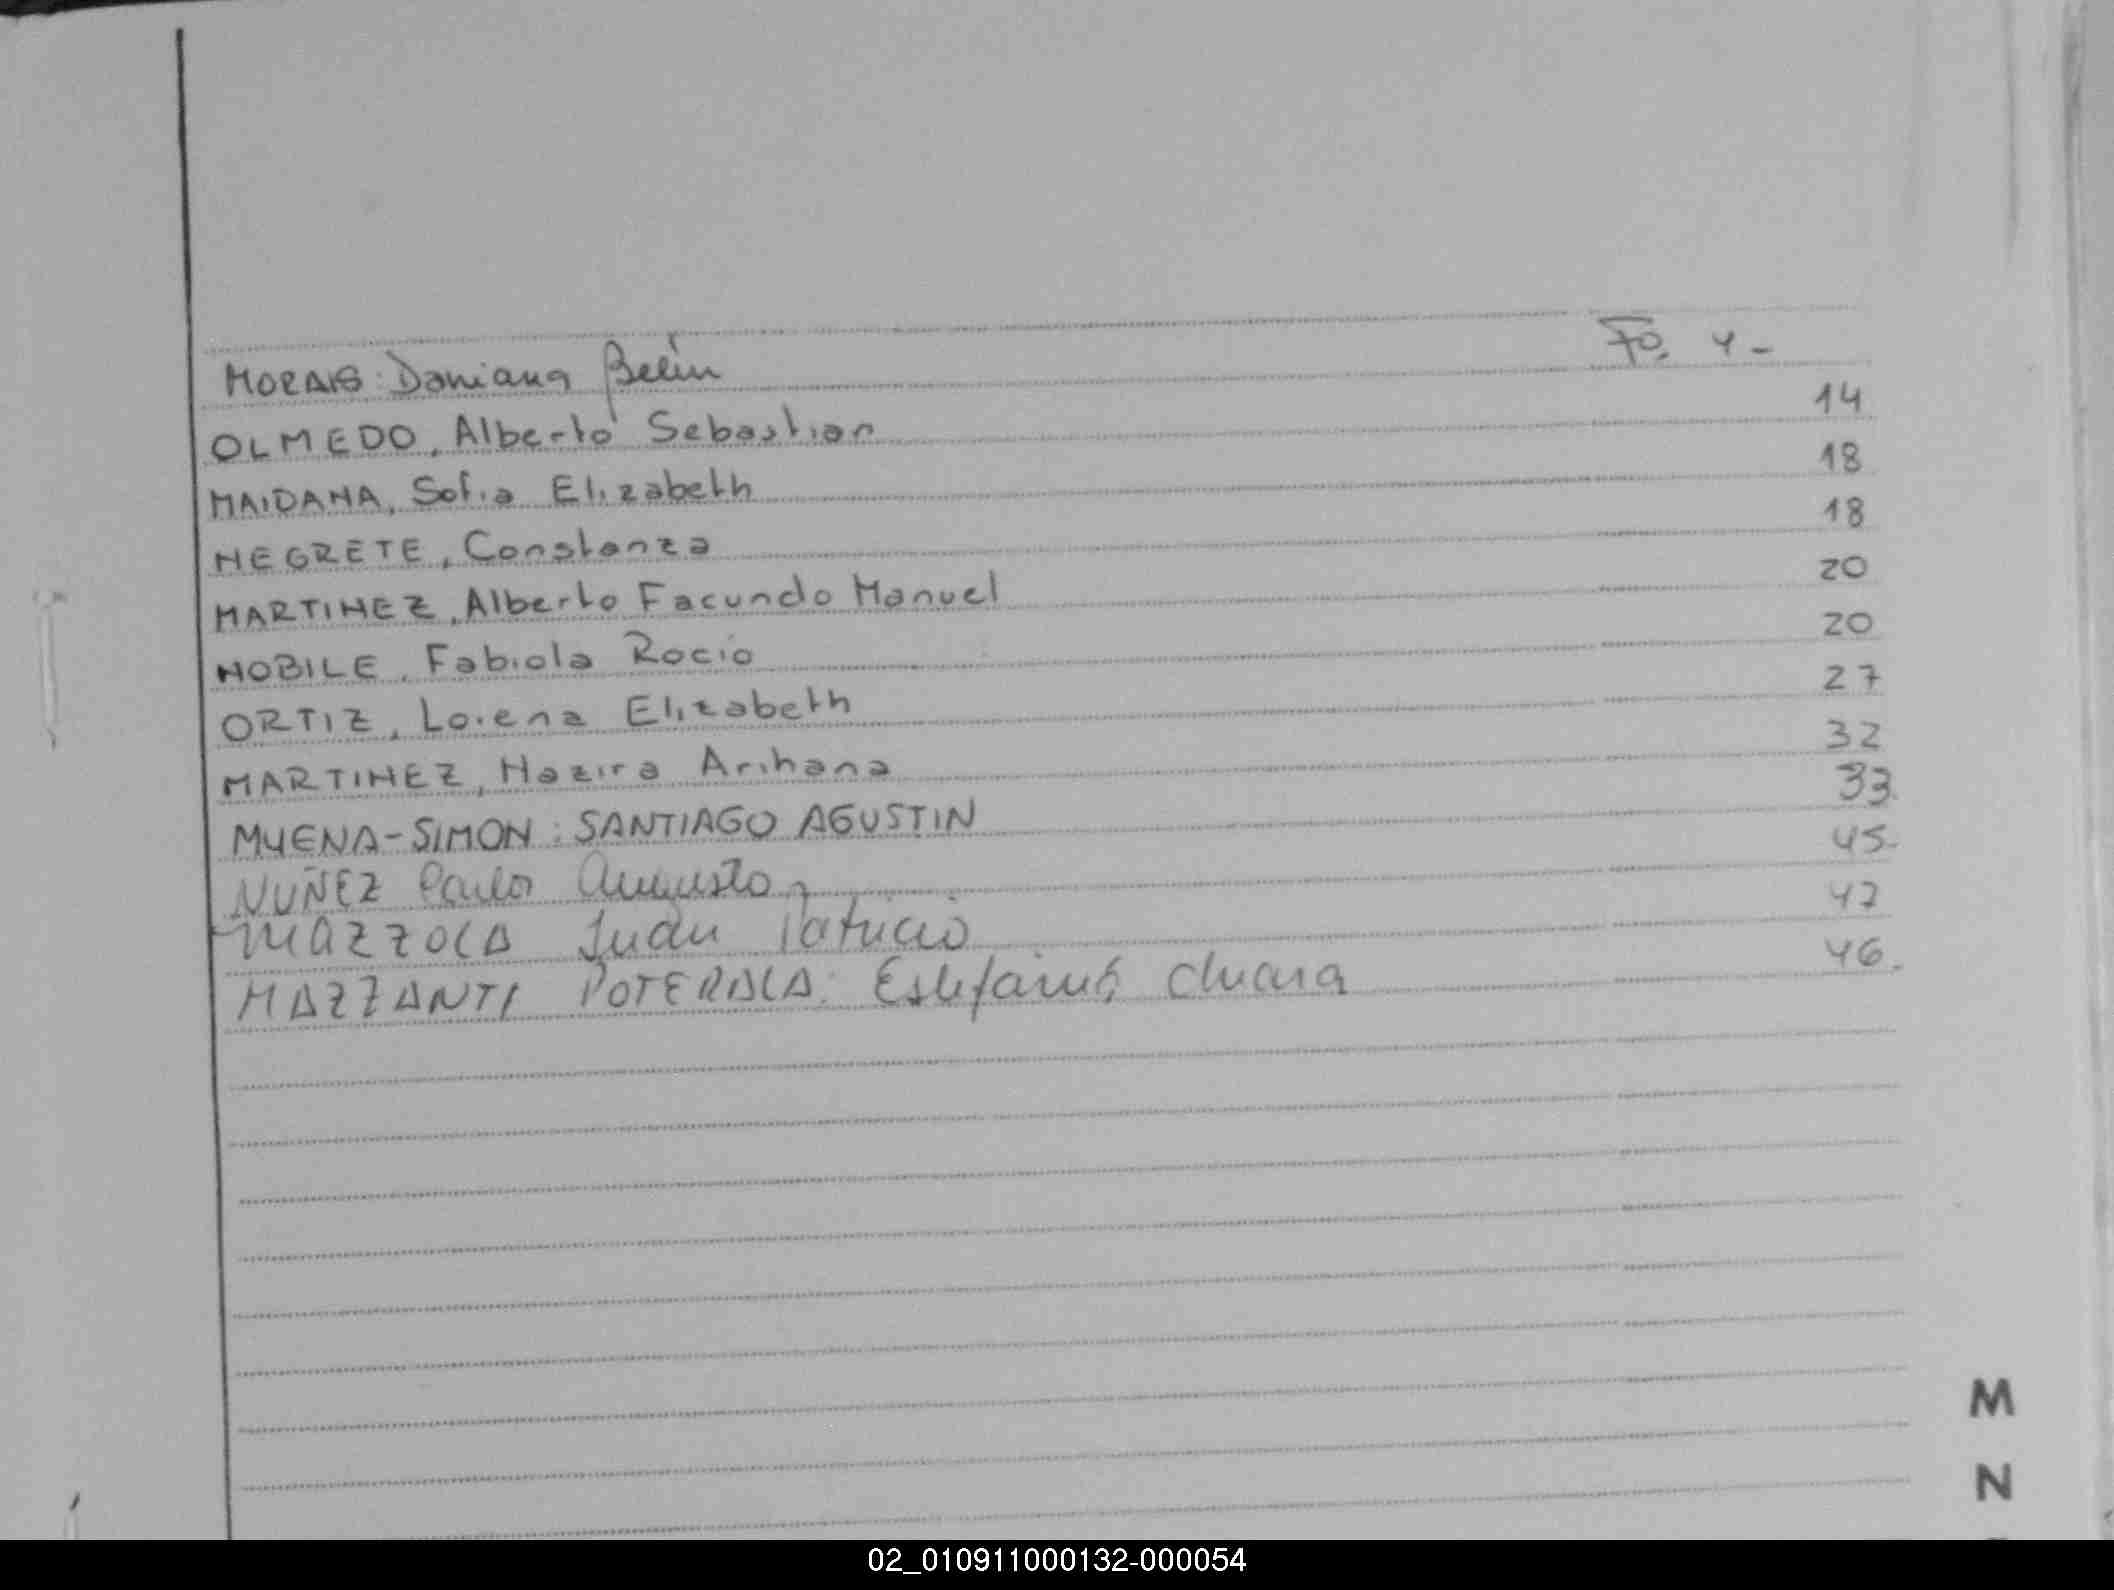 MORAIS: Damiana Belén Fo. 4-
OLMEDO, Alberto Sebastian 14
MAIDANA, Sofia Elizabeth 18
NEGRETE, Constanza 18
MARTINEZ, Alberto Facundo Manuel 20
NOBILE, Fabiola Rocio 20
ORTIZ, Lorena Elizabeth 27
MARTINEZ, Nazira Arihana 32
MYENA-SIMON: SANTIAGO AGUSTIN 33
NUÑEZ Augusto 45-
MAZZOLA Juan Patricio 47
MAZZANTI POTERALA: Estefanía Chiara 46.
M
N
02_010911000132-000054